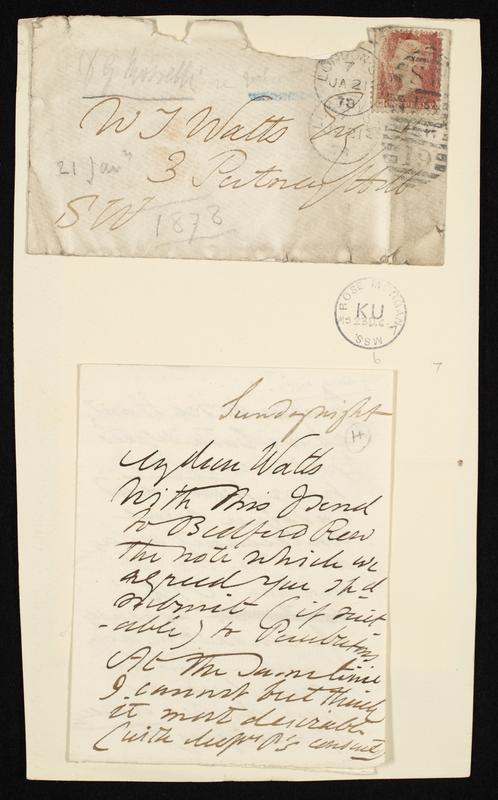 D G Rossetti
W T Watts Esq
21 Jany
3 Putney Hill
SW
1878
LONDON
7
JA 21
78
PENNY
19
ROSE MORGAN
KU
MSS.
6
7
Sunday night
H
My dear Watts
With this I send
to Bedford Row
the note which we
agreed you shd
submit (if suit
-able) to Pemberton
At the same time
I cannot but think
it most desirable
(with Messrs P's consent)